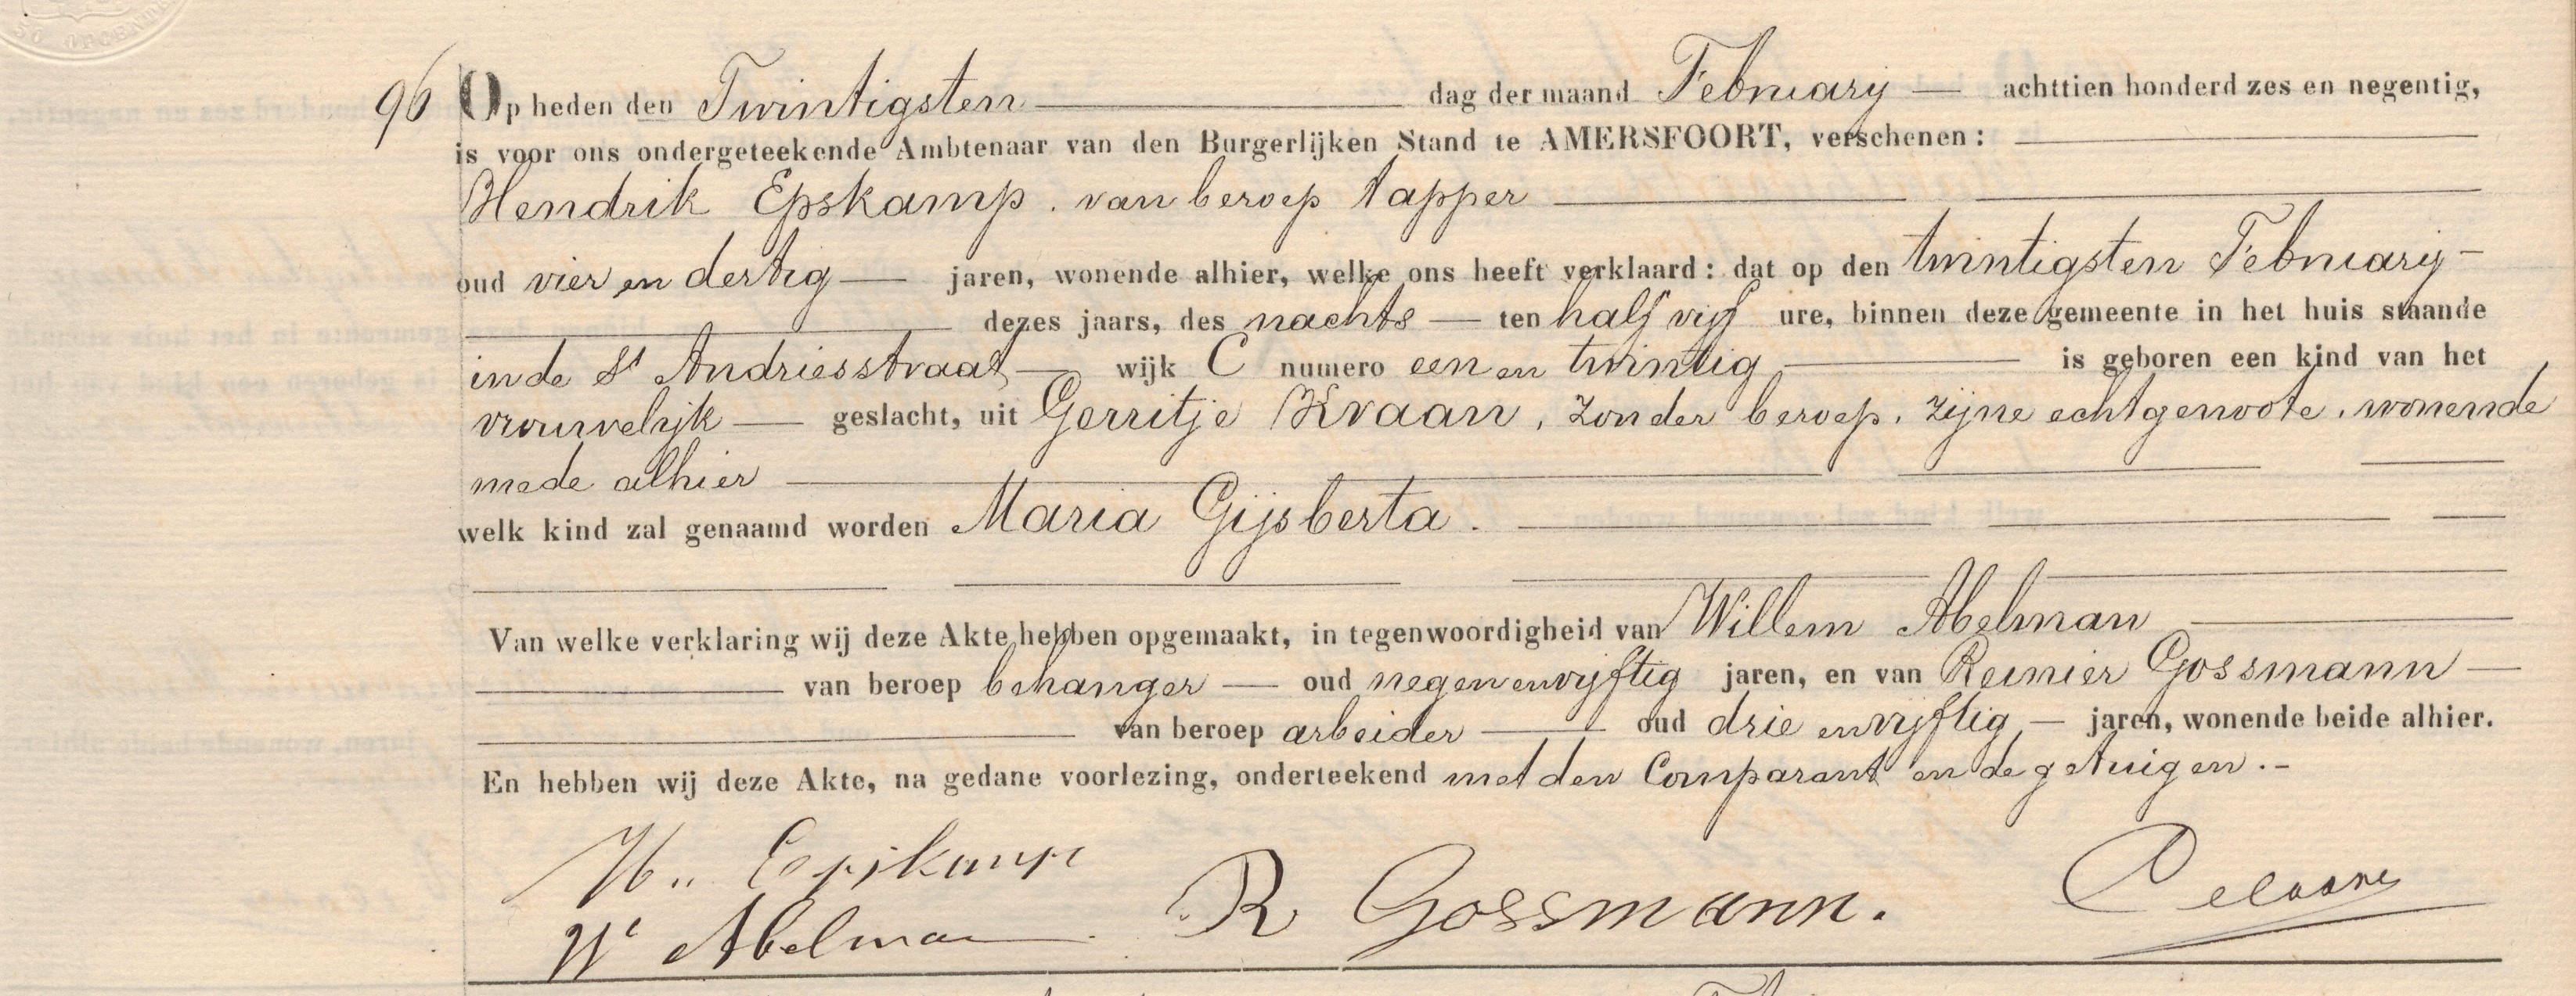 96 Op heden den Twintigsten dag der maand February achttien honderd zes en negentig,
is voor ons ondergeteekende Ambtenaar van den Burgerlijken Stand te AMERSFOORT, verschenen:
Hendrik Epskamp. van beroep tapper
oud vier en dertig jaren, wonende alhier, welke ons heeft verklaard: dat op den twintigsten February
dezes jaars, des nachts ten half vijf ure, binnen deze gemeente in het huis staande
in de St Andriesstraat wijk C numero een en twintig is geboren een kind van het
vrouwelijk geslacht, uit Gerritje Kraan, zonder beroep, zijne echtgenoote, wonende
mede alhier
welk kind zal genaamd worden Maria Gijsberta.
Van welke verklaring wij deze Akte hebben opgemaakt, in tegenwoordigheid van Willem Abelman
van beroep behanger oud negen en vijftig jaren, en van Reinier Gossmann
van beroep arbeider oud drie en vijftig jaren, wonende beide alhier.
En hebben wij deze Akte, na gedane voorlezing, onderteekend met den Comparant en de getuigen.
H. Epskamp
W Abelman R Gossmann.